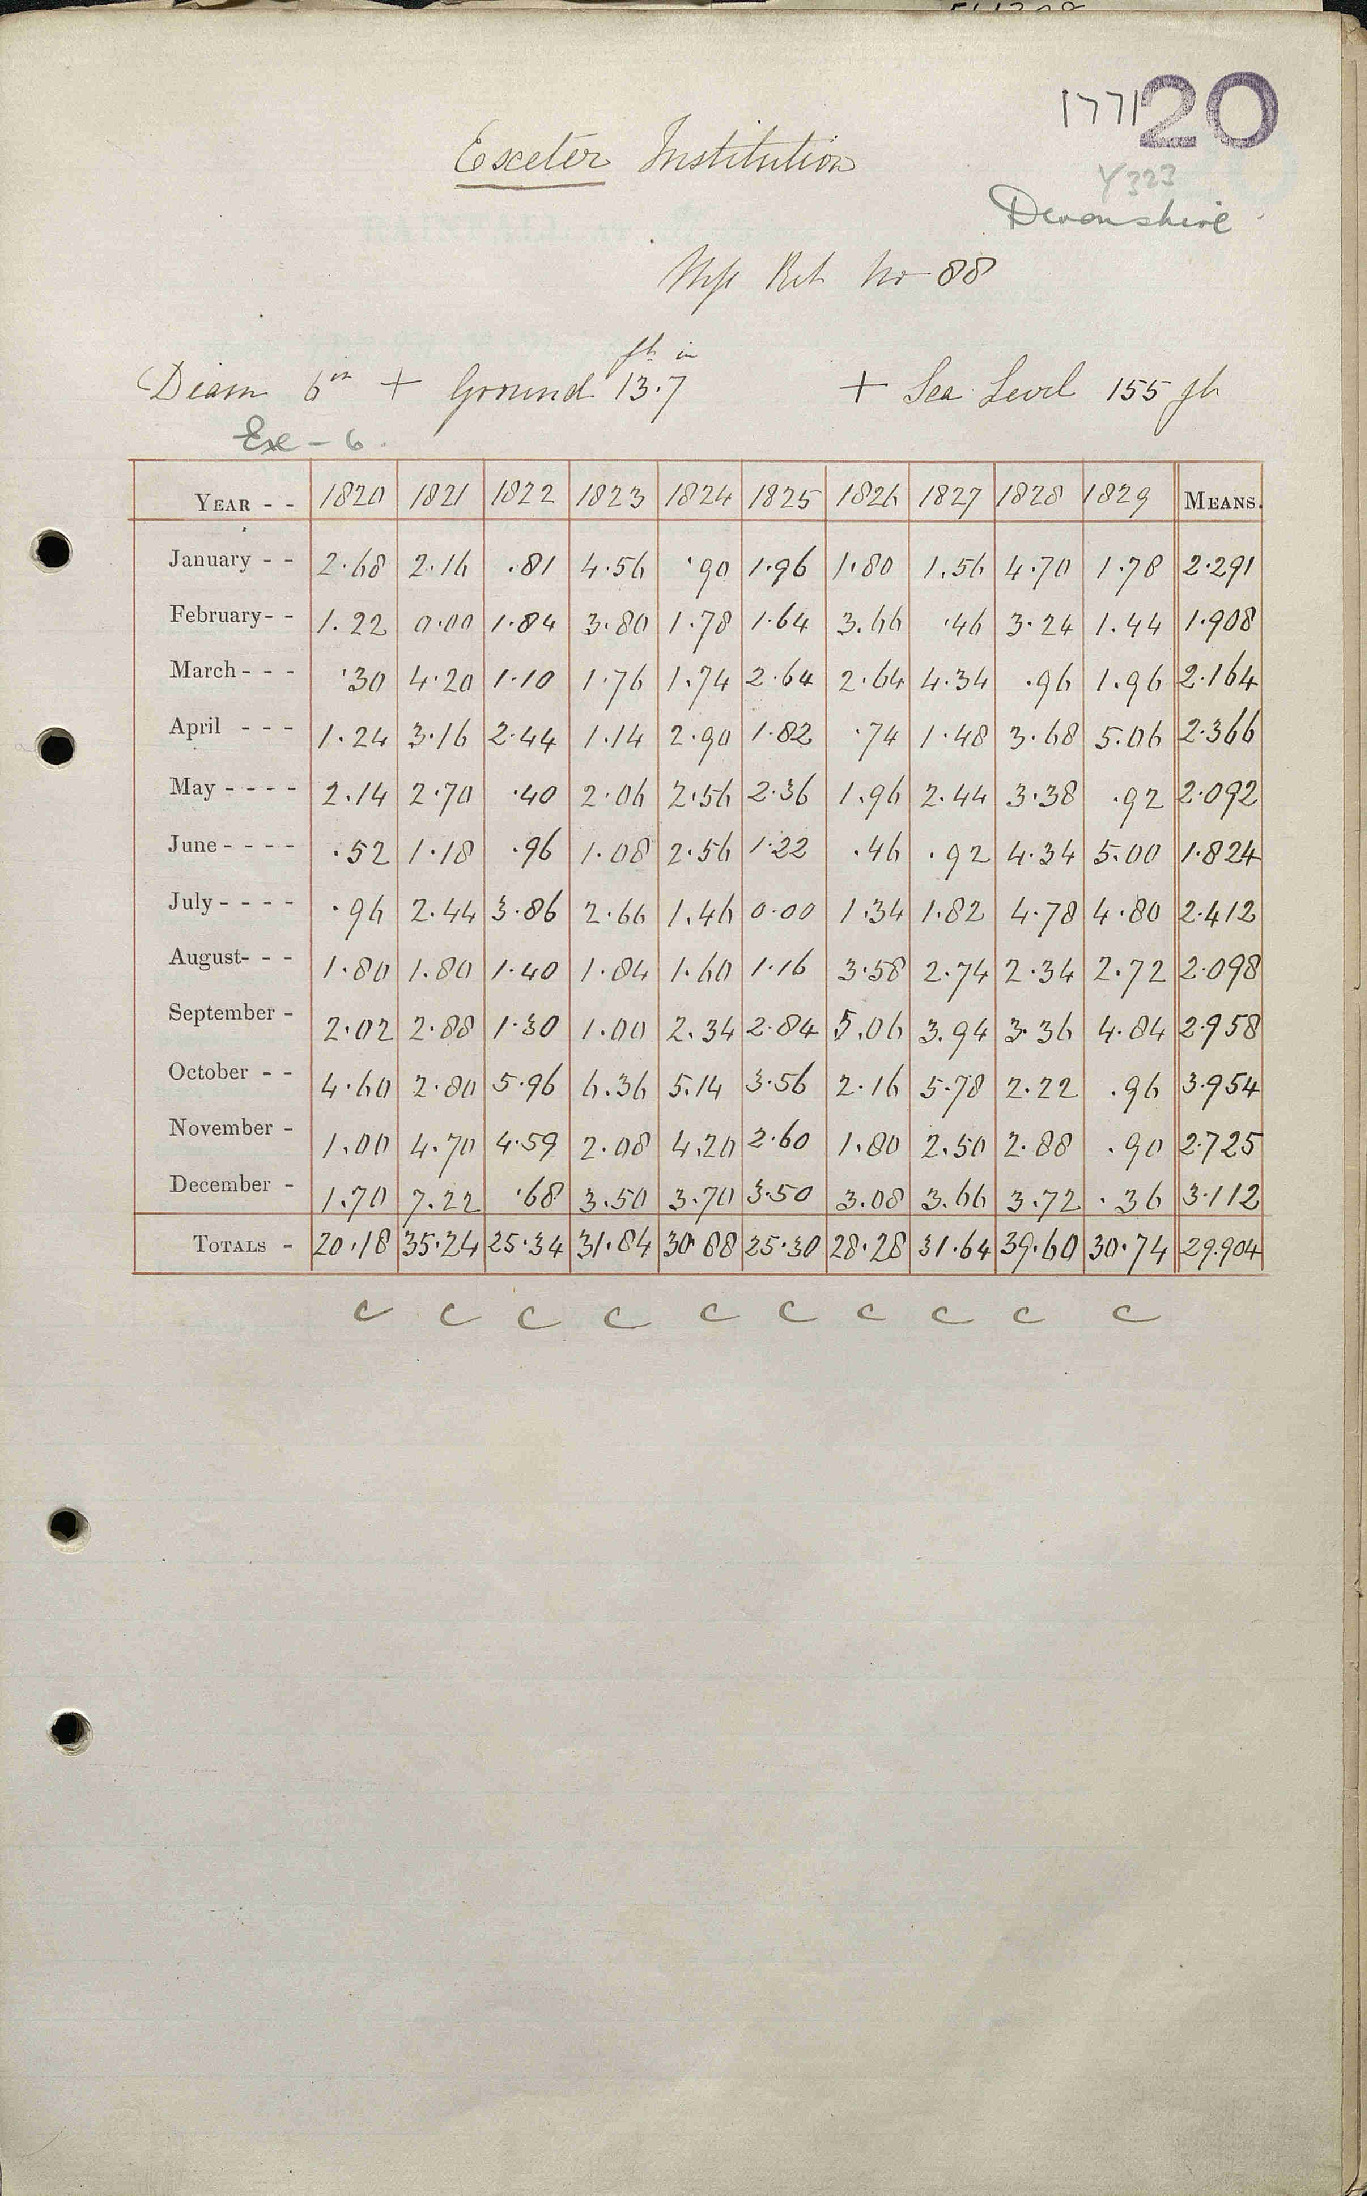 177120
Exeter Institution
Y323
Devonshire
Mss Ret No 88
ft in
Diam 6in + Ground 13.7 + Sea Level 155 ft
Exe - 6.
YEAR - - 1820 1821 1822 1823 1824 1825 1826 1827 1828 1829 MEANS.
January - - 2.68 2.16 .81 4.56 .90 1.96 1.80 1.56 4.70 1.78 2.291
February - - 1.22 0.00 1.84 3.80 1.78 1.64 3.66 .46 3.24 1.44 1.908
March - - - .30 4.20 1.10 1.76 1.74 2.64 2.64 4.34 .96 1.96 2.164
April - - - 1.24 3.16 2.44 1.14 2.90 1.82 .74 1.48 3.68 5.06 2.366
May - - - - 2.14 2.70 .40 2.06 2.56 2.36 1.96 2.44 3.38 .92 2.092
June - - - - .52 1.18 .96 1.08 2.56 1.22 .46 .92 4.34 5.00 1.824
July - - - - .96 2.44 3.86 2.66 1.46 0.00 1.34 1.82 4.78 4.80 2.412
August - - - 1.80 1.80 1.40 1.84 1.60 1.16 3.58 2.74 2.34 2.72 2.098
September - 2.02 2.88 1.30 1.00 2.34 2.84 5.06 3.94 3.36 4.84 2.958
October - - 4.60 2.80 5.96 6.36 5.14 3.56 2.16 5.78 2.22 .96 3.954
November - 1.00 4.70 4.59 2.08 4.20 2.60 1.80 2.50 2.88 .90 2.725
December - 1.70 7.22 .68 3.50 3.70 3.50 3.08 3.66 3.72 .36 3.112
TOTALS - 20.18 35.24 25.34 31.84 30.88 25.30 28.28 31.64 39.60 30.74 29.904
c c c c c c c c c c